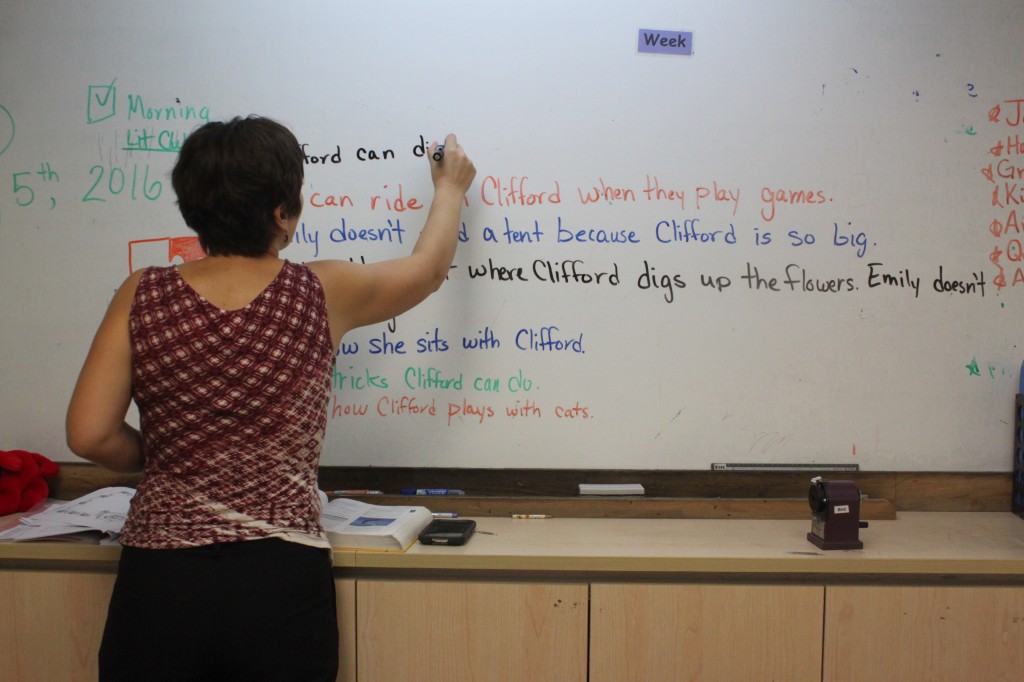 Week
Morning
Lit
5th, 2016
can
can ride Clifford when they play games.
doesn't a tent because Clifford is so big.
where Clifford digs up the flowers. Emily doesn't
she sits with Clifford.
tricks Clifford can do.
how Clifford plays with cats.